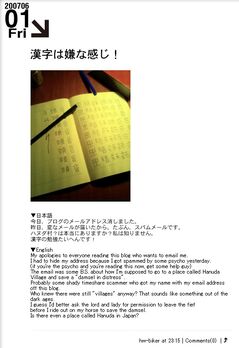 200706
01
Fri
漢字は嫌な感じ！
▼日本語
今日、ブログのメールアドレス消しました。
昨日、変なメールが届いたから。たぶん、スパムメールです。
ハヌダ村？は本当にありますか？私は知りません。
漢字の勉強たいへんです！
▼English
My apologies to everyone reading this blog who wants to email me.
I had to hide my address because I got spammed by some psycho yesterday.
(if you're the psycho and you're reading this now, get some help guy)
The email was some B.S. about how I'm supposed to go to a place called Hanuda
Village and save a "damsel in distress".
Probably some shady timeshare scammer who got my name with my email address
off this blog.
Who knew there were still "villages" anyway? That sounds like something out of the
dark ages.
I guess I'd better ask the lord and lady for permission to leave the fief
before I ride out on my horse to save the damsel.
Is there even a place called Hanuda in Japan?
hw-biker at 23:15 | Comments(8) |